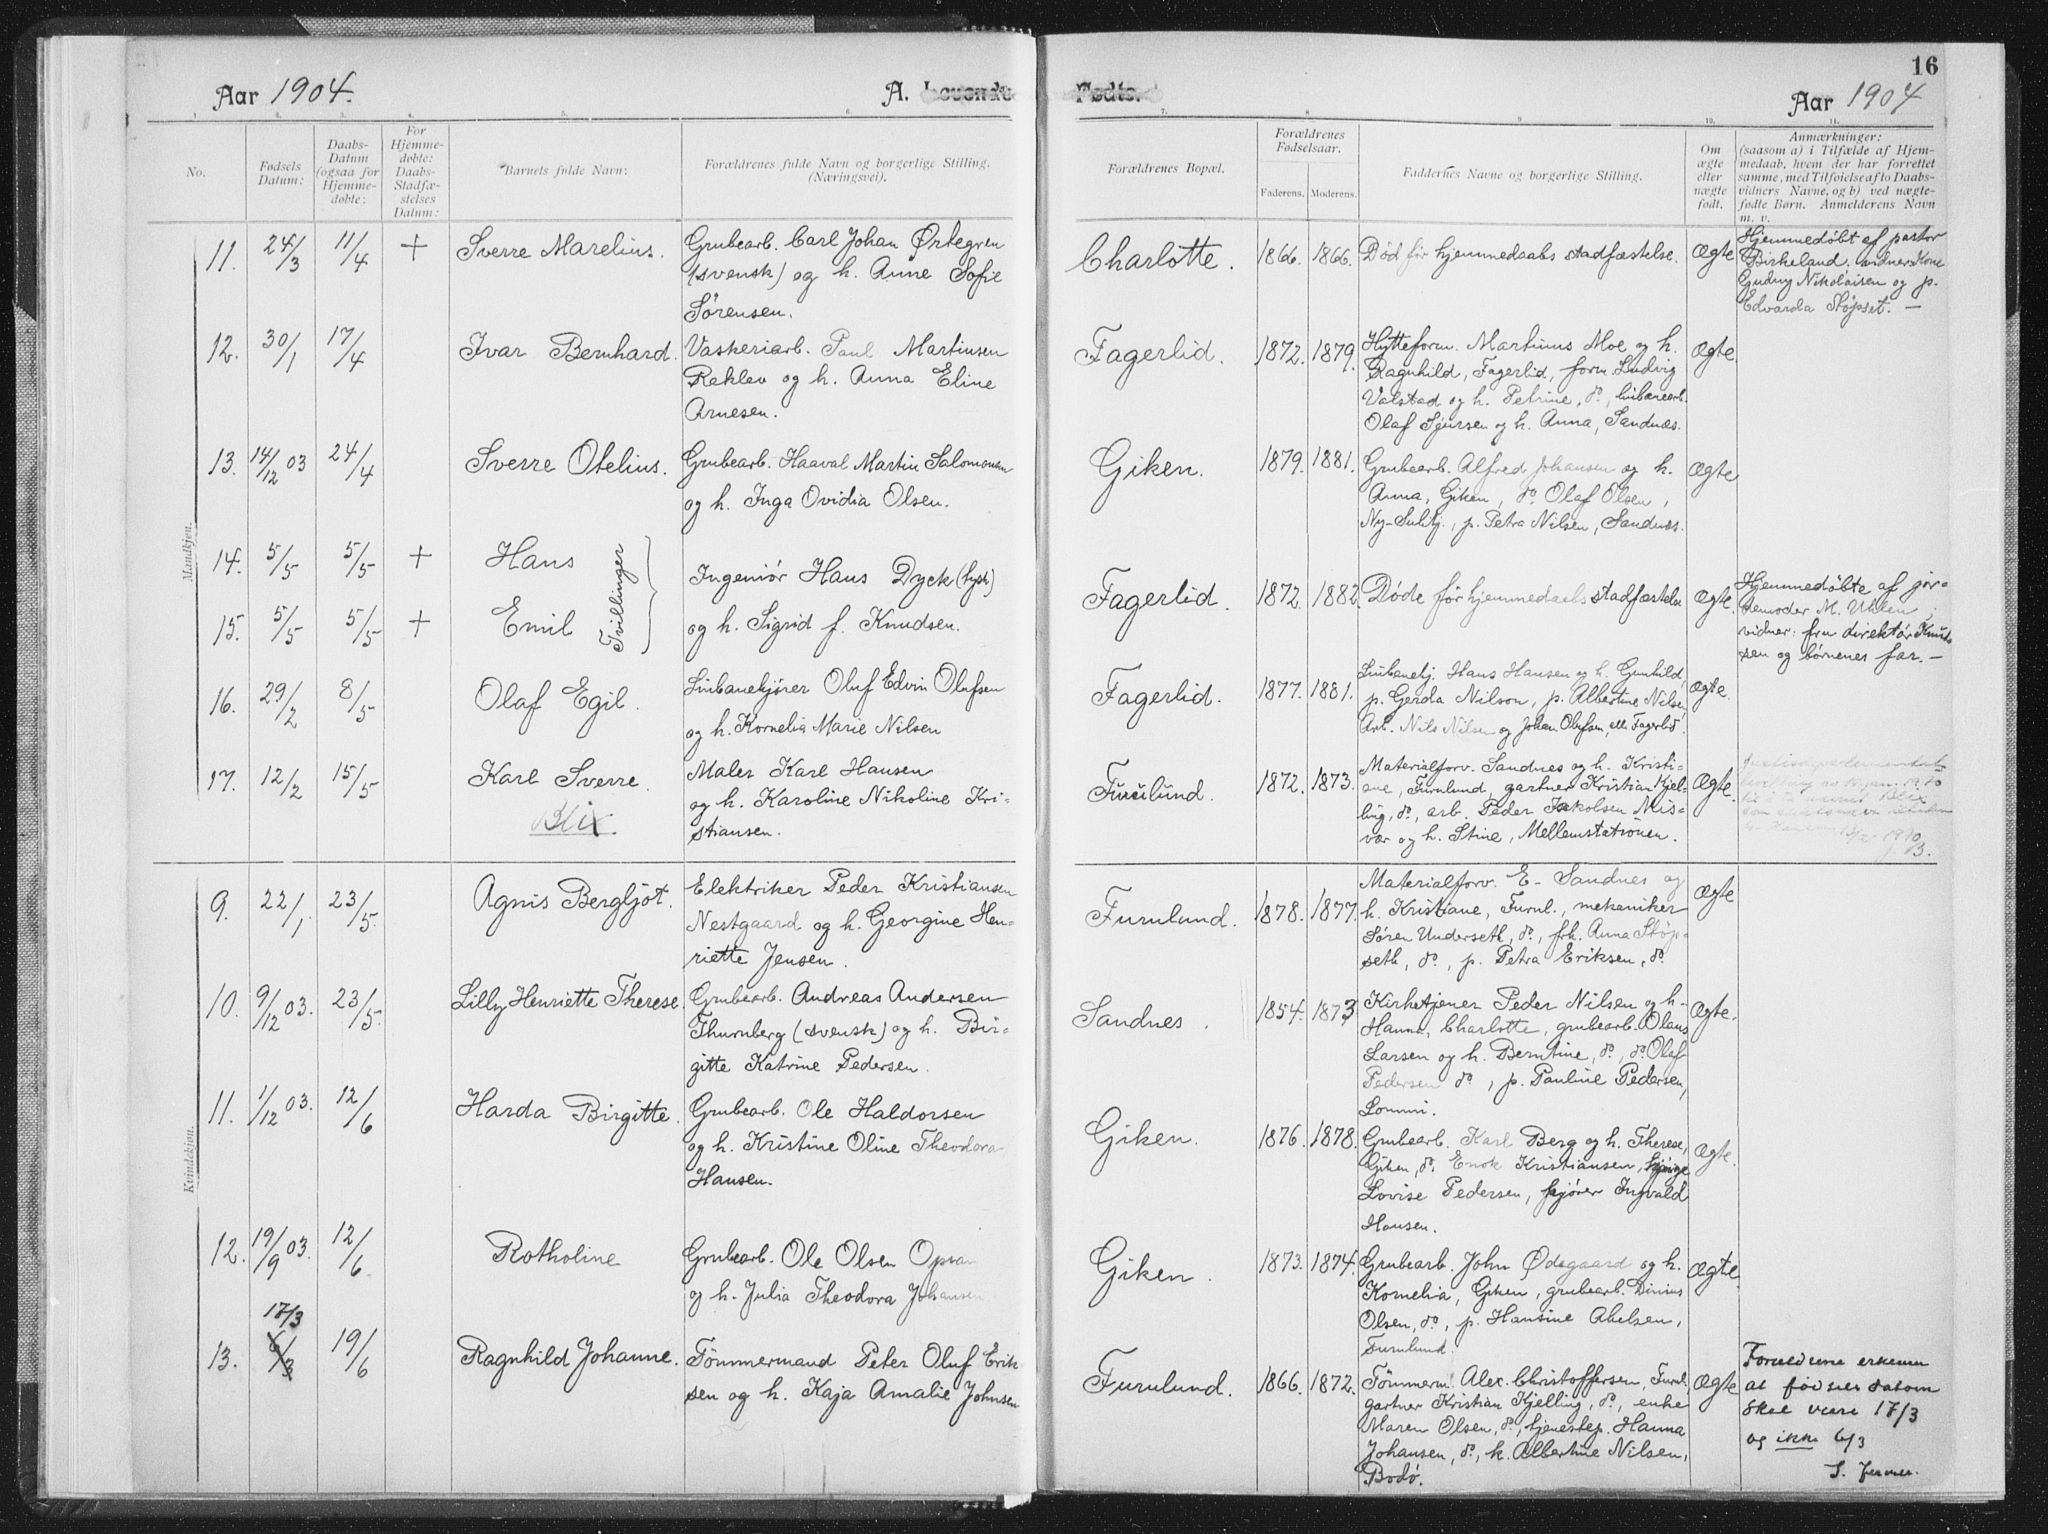 16
Aar 1904. A. Levende Fødte. Aar 1904
1. 2. 3. 4. 5. 6. 7. 8. 9. 10. 11.
No.
Fødsels Datum:
Daabs-Datum (ogsaa for Hjemme-døbte:
For Hjemme-døbte: Daabs-Stadfæ-stelses Datum:
Barnets fulde Navn:
Forældrenes fulde Navn og borgerlige Stilling.
(Næringsvei).
Forældrenes Bopæl.
Forældrenes Fødselsaar.
Faderens. Moderens.
Faddernes Navne og borgerlige Stilling.
Om ægte eller nægte født.
Anmærkninger:
(saasom a) i Tilfælde af Hjem-
medaab, hvem der har forrettet
samme, med Tilføielse af to Daabs-
vidners Navne, og b) ved uægte-
fødte Børn. Anmelderens Navn
m. v.
Mandkjøn.
11. 24/3 11/4 + Sverre Marelius. Grubearb. Carl Johan Örtegren
(svensk) og h. Anne Sofie
Sörensen.
Charlotte. 1866. 1866. Död för hjemmedaabs stadfæstelse. Ægte
Hjemmedöbt af pastor
Birkeland. vidner: Kone
Gudny Nikolaisen og p.
Edvarda Stöpset. —
12. 30/1 17/4 Ivar Bernhard. Vaskeriarb. Paul Martinsen
Reklev og h. Anna Eline
Arnesen.
Fagerlid. 1872. 1879. Hytteform. Martinus Moe og h. Ægte.
Ragnhild, Fagerlid, form. Ludvig
Valstad og h. Petrine, do., linbanearb.
Olaf Sjursen og h. Anna, Sandnæs.
13. 14/12 03 24/4 Sverre Otelius. Grubearb. Haaval Martin Salomonsen
og h. Inga Ovidia Olsen.
Giken. 1879. 1881. Grubearb. Alfred Johansen og h. Ægte
Anna, Giken, do. Olaf Olsen,
Ny-Sulitj., p. Petra Nilsen, Sandnæs.
14. 5/5 5/5 + Hans
Tvillinger
Ingeniör Hans Dyck (tysk)
15. 5/5 5/5 + Emil
og h. Sigrid f. Knudsen.
Fagerlid. 1872. 1882. Döde för hjemmedaabs stadfæstelse Ægte.
Hjemmedöbte af jor-
demoder M. Uhlen;
vidner: fru direktör Knud-
sen og börnenes far. —
16. 29/2 8/5 Olaf Egil. Linbanekjörer Oluf Edvin Olufsen
og h. Kornelia Marie Nilsen
Fagerlid. 1877. 1881. Linbanekj. Hans Hansen og h. Gunhild, Ægte.
p. Gerda Nilson, p. Albertine Nilsen,
Arb. Nils Nilsen og Johan Olufsen, alle Fagerlid.
17. 12/2 15/5 Karl Sverre. Maler Karl Hansen
Blix.
og h. Karoline Nikoline Kri-
stiansen.
Furulund. 1872. 1873. Materialforv. Sandnes og h. Kristi- Ægte.
ane, Furulund, gartner Kristian Kjel-
ling, do., arb. Peder Jakobsen Mis-
vær og h. Stine, Mellemstationen.
Blix
Kvindekjøn.
9. 22/1 23/5 Agnis Bergljót. Elektriker Peder Kristiansen
Nestgaard og h. Georgine Hen-
riette Jensen.
Furulund. 1878. 1877. Materialforv. E. Sandnes og Ægte
h. Kristiane, Furul., mekaniker
Sören Underseth, do., frk. Anna Stöp-
seth, do., p. Petra Eriksen, do.
10. 9/12 03. 23/5. Lilly Henriette Therese. Grubearb. Andreas Andersen
Thurnberg (svensk) og h. Bir-
gitte Katrine Pedersen.
Sandnes. 1854. 1873 Kirketjener Peder Nilsen og h. Ægte.
Hanna, Charlotte, grubearb. Olaus
Larsen og h. Berntine, do., do. Olaf
Pedersen do., p. Pauline Pedersen,
Lommi.
11. 1/12 03. 12/6 Harda Birgitte. Grubearb. Ole Haldorsen
og h. Kristine Oline Theodora
Hansen.
Giken. 1876. 1878. Grubearb. Karl Berg og h. Therese, Ægte.
Giken, do. Enok Kristiansen,
Lovise Pedersen, kjörer Ingvald
Hansen.
12. 19/9 03. 12/6. Rotholine Grubearb. Ole Olsen
og h. Julia Theodora Johansen.
Giken. 1873. 1874. Grubearb. John Ödegaard og h. Ægte.
Kornelia, Giken, grubearb. Dinius
Olsen, do., p. Hansine Abelsen,
Furulund.
13. 17/3 6/3 19/6 Ragnhild Johanne. Tömmermand Peter Oluf Erik-
sen og h. Kaja Amalie Johnsen
Furulund. 1866. 1872. Tömmerm. Alex. Christoffersen, Furul. Ægte
gartner Kristian Kjelling, do., enke
Maren Olsen, do., tjenestep. Hanna
Johansen, do., k. Albertine Nilsen,
Bodö.
Forældrene erkjenner
at födselsdatoen
skal være 17/3
og ikke 6/3